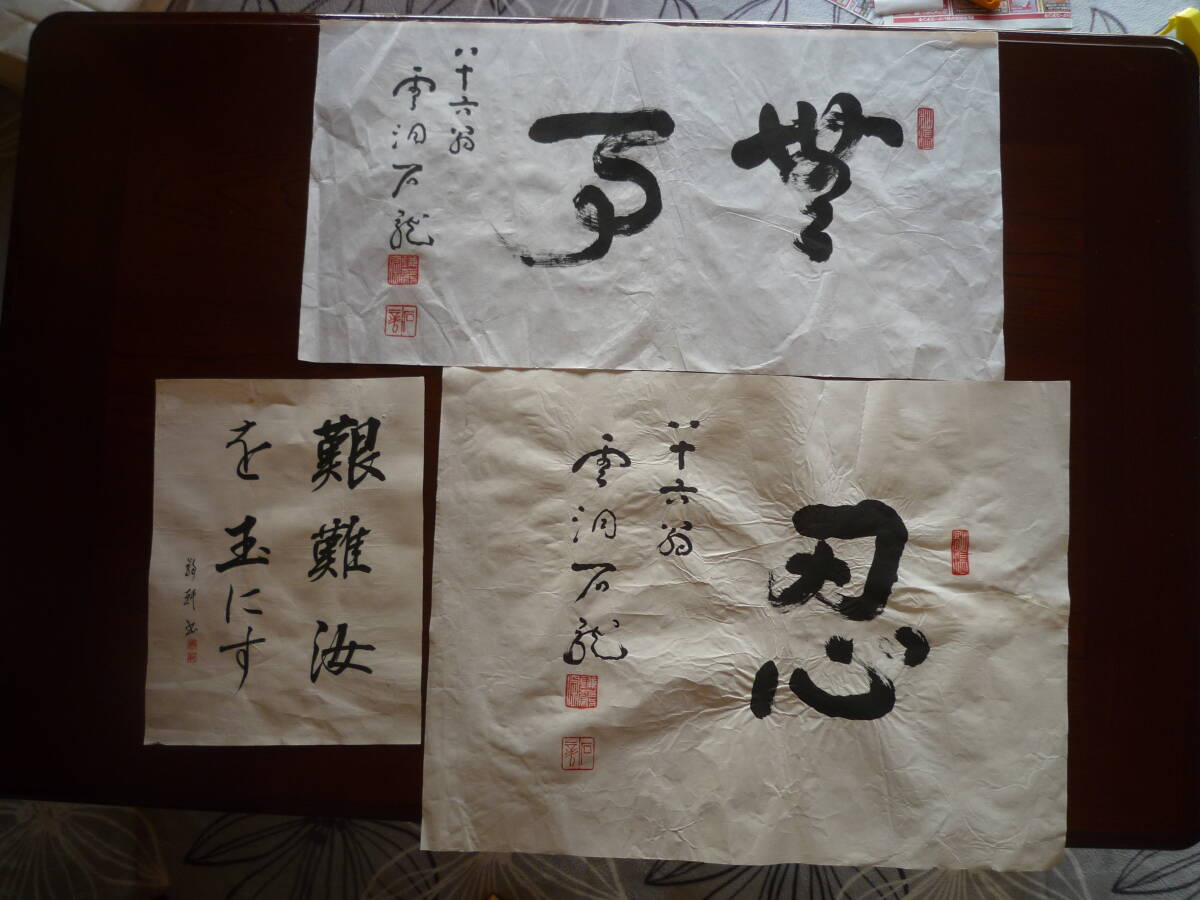 無事
八十六翁
雲洞石龍
忍
八十六翁
雲洞石龍
艱難汝
を玉にす